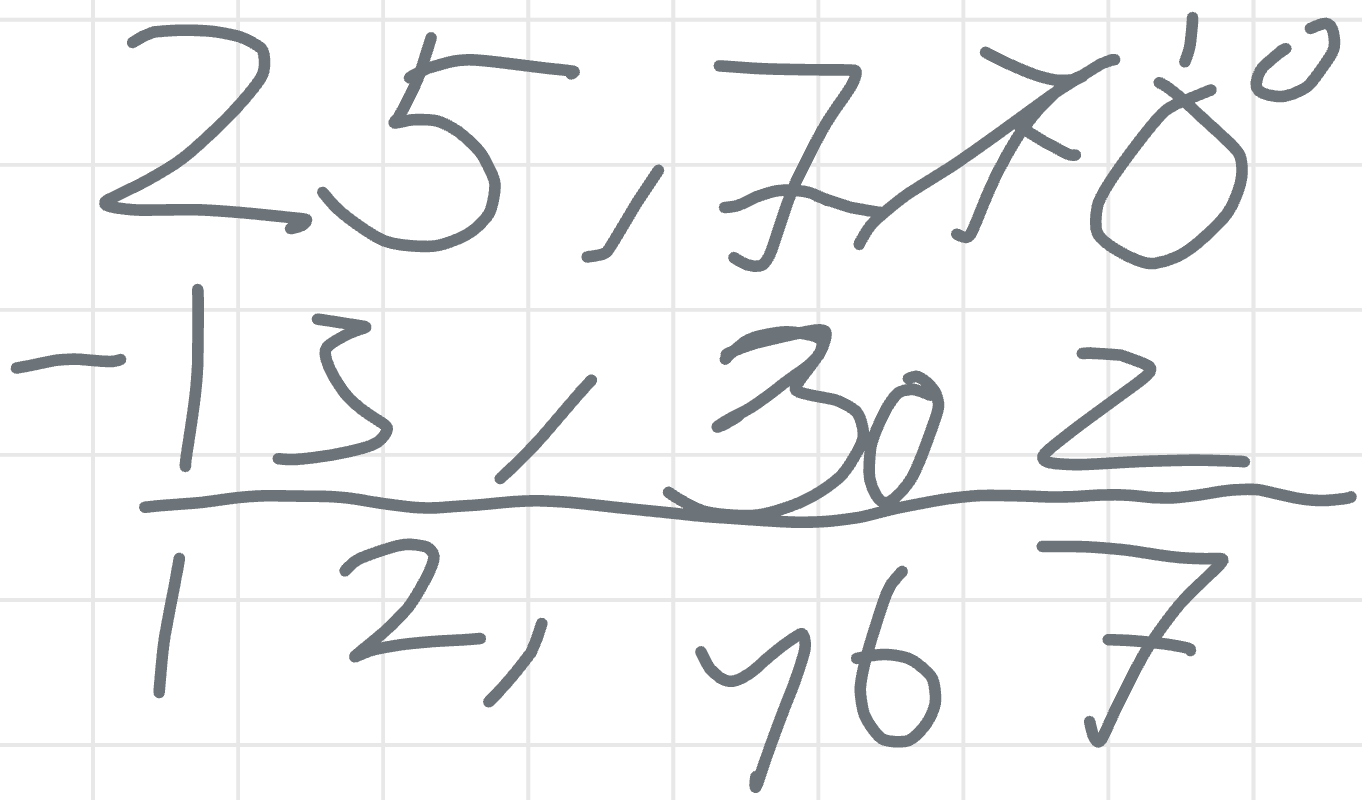 25,770¹⁰
-13,302
12,467